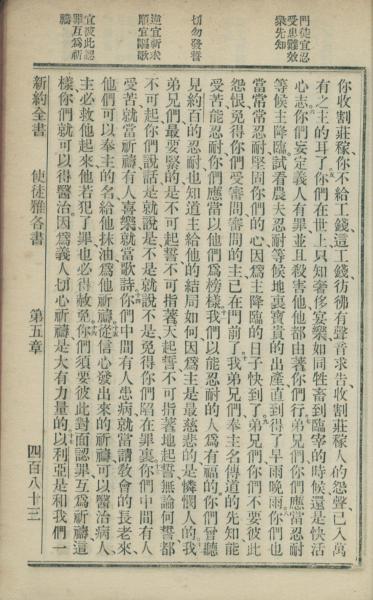 門徒宜忍
受患難效
衆先知
切勿發誓
遭宜祈求
順宜謳歌
宜彼此認
罪互爲祈
禱
你收割莊稼、你不給工錢、這工錢彷彿有聲音求告、收割莊稼人的怨聲、已入萬
有之主的耳了、你們在世上、只知奢侈宴樂、如同牲畜到臨宰的時候、還是快活
心志、你們妄定義人有罪、並且殺害他、他都由著你們行、弟兄們、你們應當忍耐
等候主降臨、試看農夫忍耐等候地裏寶貴的出產、直到得了早雨晚雨、你們也
當常常忍耐、堅固你們的心、因爲主降臨的日子快到了、弟兄們、你們不要彼此
怨恨、免得你們受審問、審問的主已在門前了、我弟兄們、奉主名傳道的先知、能
受苦能忍耐、你們應當以他們爲榜樣、我們以能忍耐的人爲有福的、你們曾聽
見約百的忍耐、也知道主給他的結局如何、因爲主是最慈悲的、是憐憫人的、我
弟兄們、最要緊的是不可起誓、不可指著天起誓、不可指著地起誓、無論何誓都
不可起、你們說話、是就說是、不是就說不是、免得你們陷在罪裏、你們中間有人
受苦、就當祈禱、有人喜樂、就當歌詩、你們中間有人患病、就當請教會的長老來、
他們可以奉主的名給他抹油、爲他祈禱、從信心發出來的祈禱、可以醫治病人、
主必救他起來、他若犯了罪、也必得赦免、你們須要彼此對面認罪、互爲祈禱、這
樣你們就可以得醫治、因爲義人切心祈禱、是大有力量的、以利亞是和我們一
新約全書 使徒雅各書 第五章 四百八十三